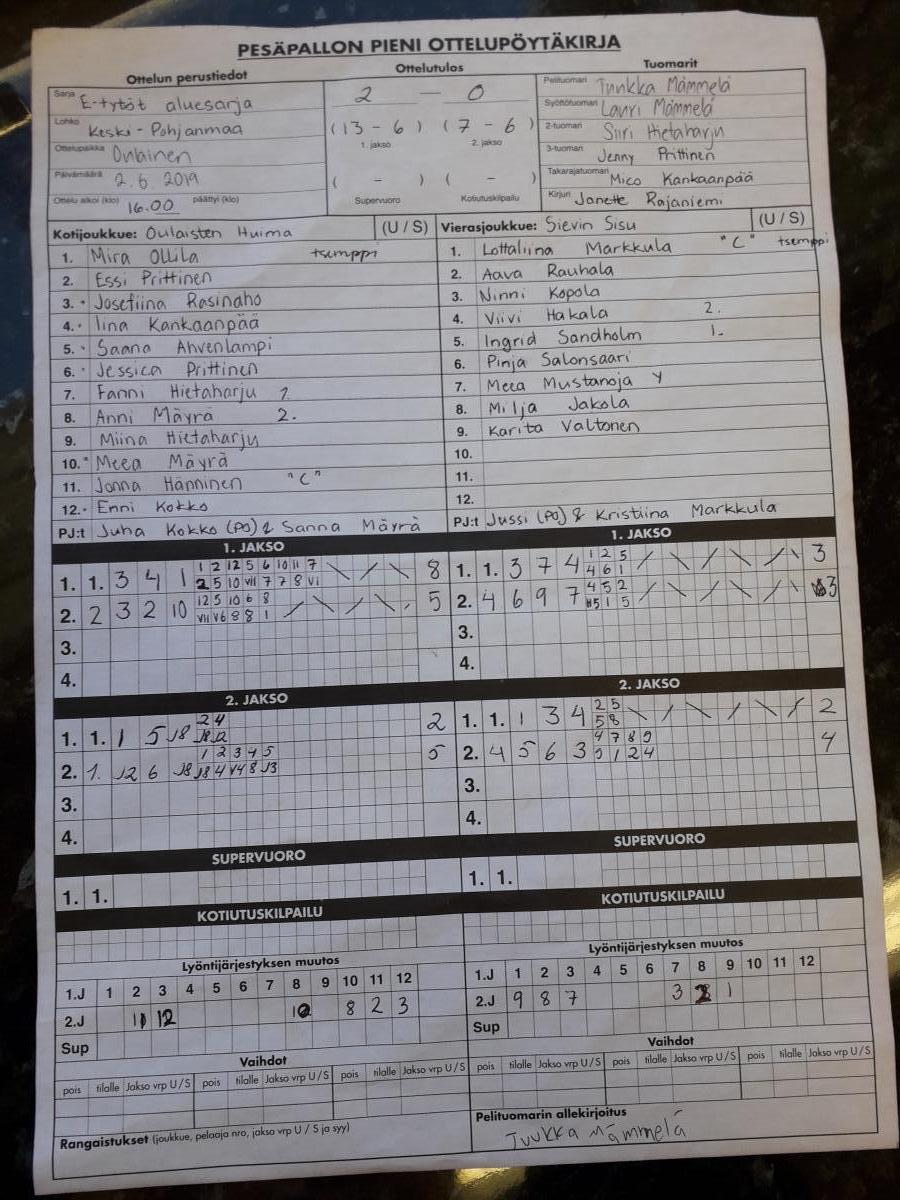 PESÄPALLON PIENI OTTELUPÖYTÄKIRJA
Ottelun perustiedot
Sarja E-tytöt aluesarja
Lohko Keski-Pohjanmaa
Ottelupaikka Oulainen
Päivämäärä 2.6.2019
Ottelu alkoi (klo) 16.00 päättyi (klo)
Ottelutulos
2 — 0
(13 - 6) (7 - 6)
1. jakso 2. jakso
( - ) ( - )
Supervuoro Kotiutuskilpailu
Tuomarit
Pelituomari Tuukka Mämmelä
Syöttötuomari Lauri Mämmelä
2-tuomari Siiri Hietaharju
3-tuomari Jenny Prittinen
Takarajatuomari Mico Kankaanpää
Kirjuri Janette Rajaniemi
Kotijoukkue: Oulaisten Huima (U / S)
1. Mira Ollila tsemppi
2. Essi Prittinen
3. Josefiina Rasinaho
4. Iina Kankaanpää
5. Saana Ahvenlampi
6. Jessica Prittinen
7. Fanni Hietaharju 1.
8. Anni Mäyrä 2.
9. Miina Hietaharju
10. Meea Mäyrä
11. Jonna Hänninen "C"
12. Enni Kokko
PJ:t Juha Kokko (PO) & Sanna Mäyrä
Vierasjoukkue: Sievin Sisu (U / S)
1. Lottaliina Markkula "C" tsemppi
2. Aava Rauhala
3. Ninni Kopola
4. Viivi Hakala 2.
5. Ingrid Sandholm 1.
6. Pinja Salonsaari
7. Meea Mustanoja
8. Milja Jakola
9. Karita Valtonen
10.
11.
12.
PJ:t Jussi (PO) & Kristiina Markkula
1. JAKSO
1. 1. 3 4 1 8
1 2 12 5 6 10 11 7
2 5 10 VII 7 7 8 VI
2. 2 3 2 10 5
12 5 10 6 8
VII V6 8 8 1
3.
4.
1. JAKSO
1. 1. 3 7 4 3
1 2 5
4 6 1
2. 4 6 9 7 3
4 5 2
5 1 5
3.
4.
2. JAKSO
1. 1. 1 5 18 2
2 4
18 12
2. 1. 12 6 18 5
1 2 3 4 5
18 4 V4 8 13
3.
4.
2. JAKSO
1. 1. 1 3 4 2
2 5
5 8
2. 4 5 6 3 4
4 7 8 9
9 1 2 4
3.
4.
SUPERVUORO
1. 1.
SUPERVUORO
1. 1.
KOTIUTUSKILPAILU
KOTIUTUSKILPAILU
Lyöntijärjestyksen muutos
1.J 1 2 3 4 5 6 7 8 9 10 11 12
2.J 11 12 10 8 2 3
Sup
Lyöntijärjestyksen muutos
1.J 1 2 3 4 5 6 7 8 9 10 11 12
2.J 9 8 7 3 2 1
Sup
Vaihdot
pois tilalle Jakso vrp U / S pois tilalle Jakso vrp U / S pois tilalle Jakso vrp U / S
Vaihdot
pois tilalle Jakso vrp U / S pois tilalle Jakso vrp U / S pois tilalle Jakso vrp U / S
Rangaistukset (joukkue, pelaaja nro, jakso vrp U / S ja syy)
Pelituomarin allekirjoitus
Tuukka Mämmelä